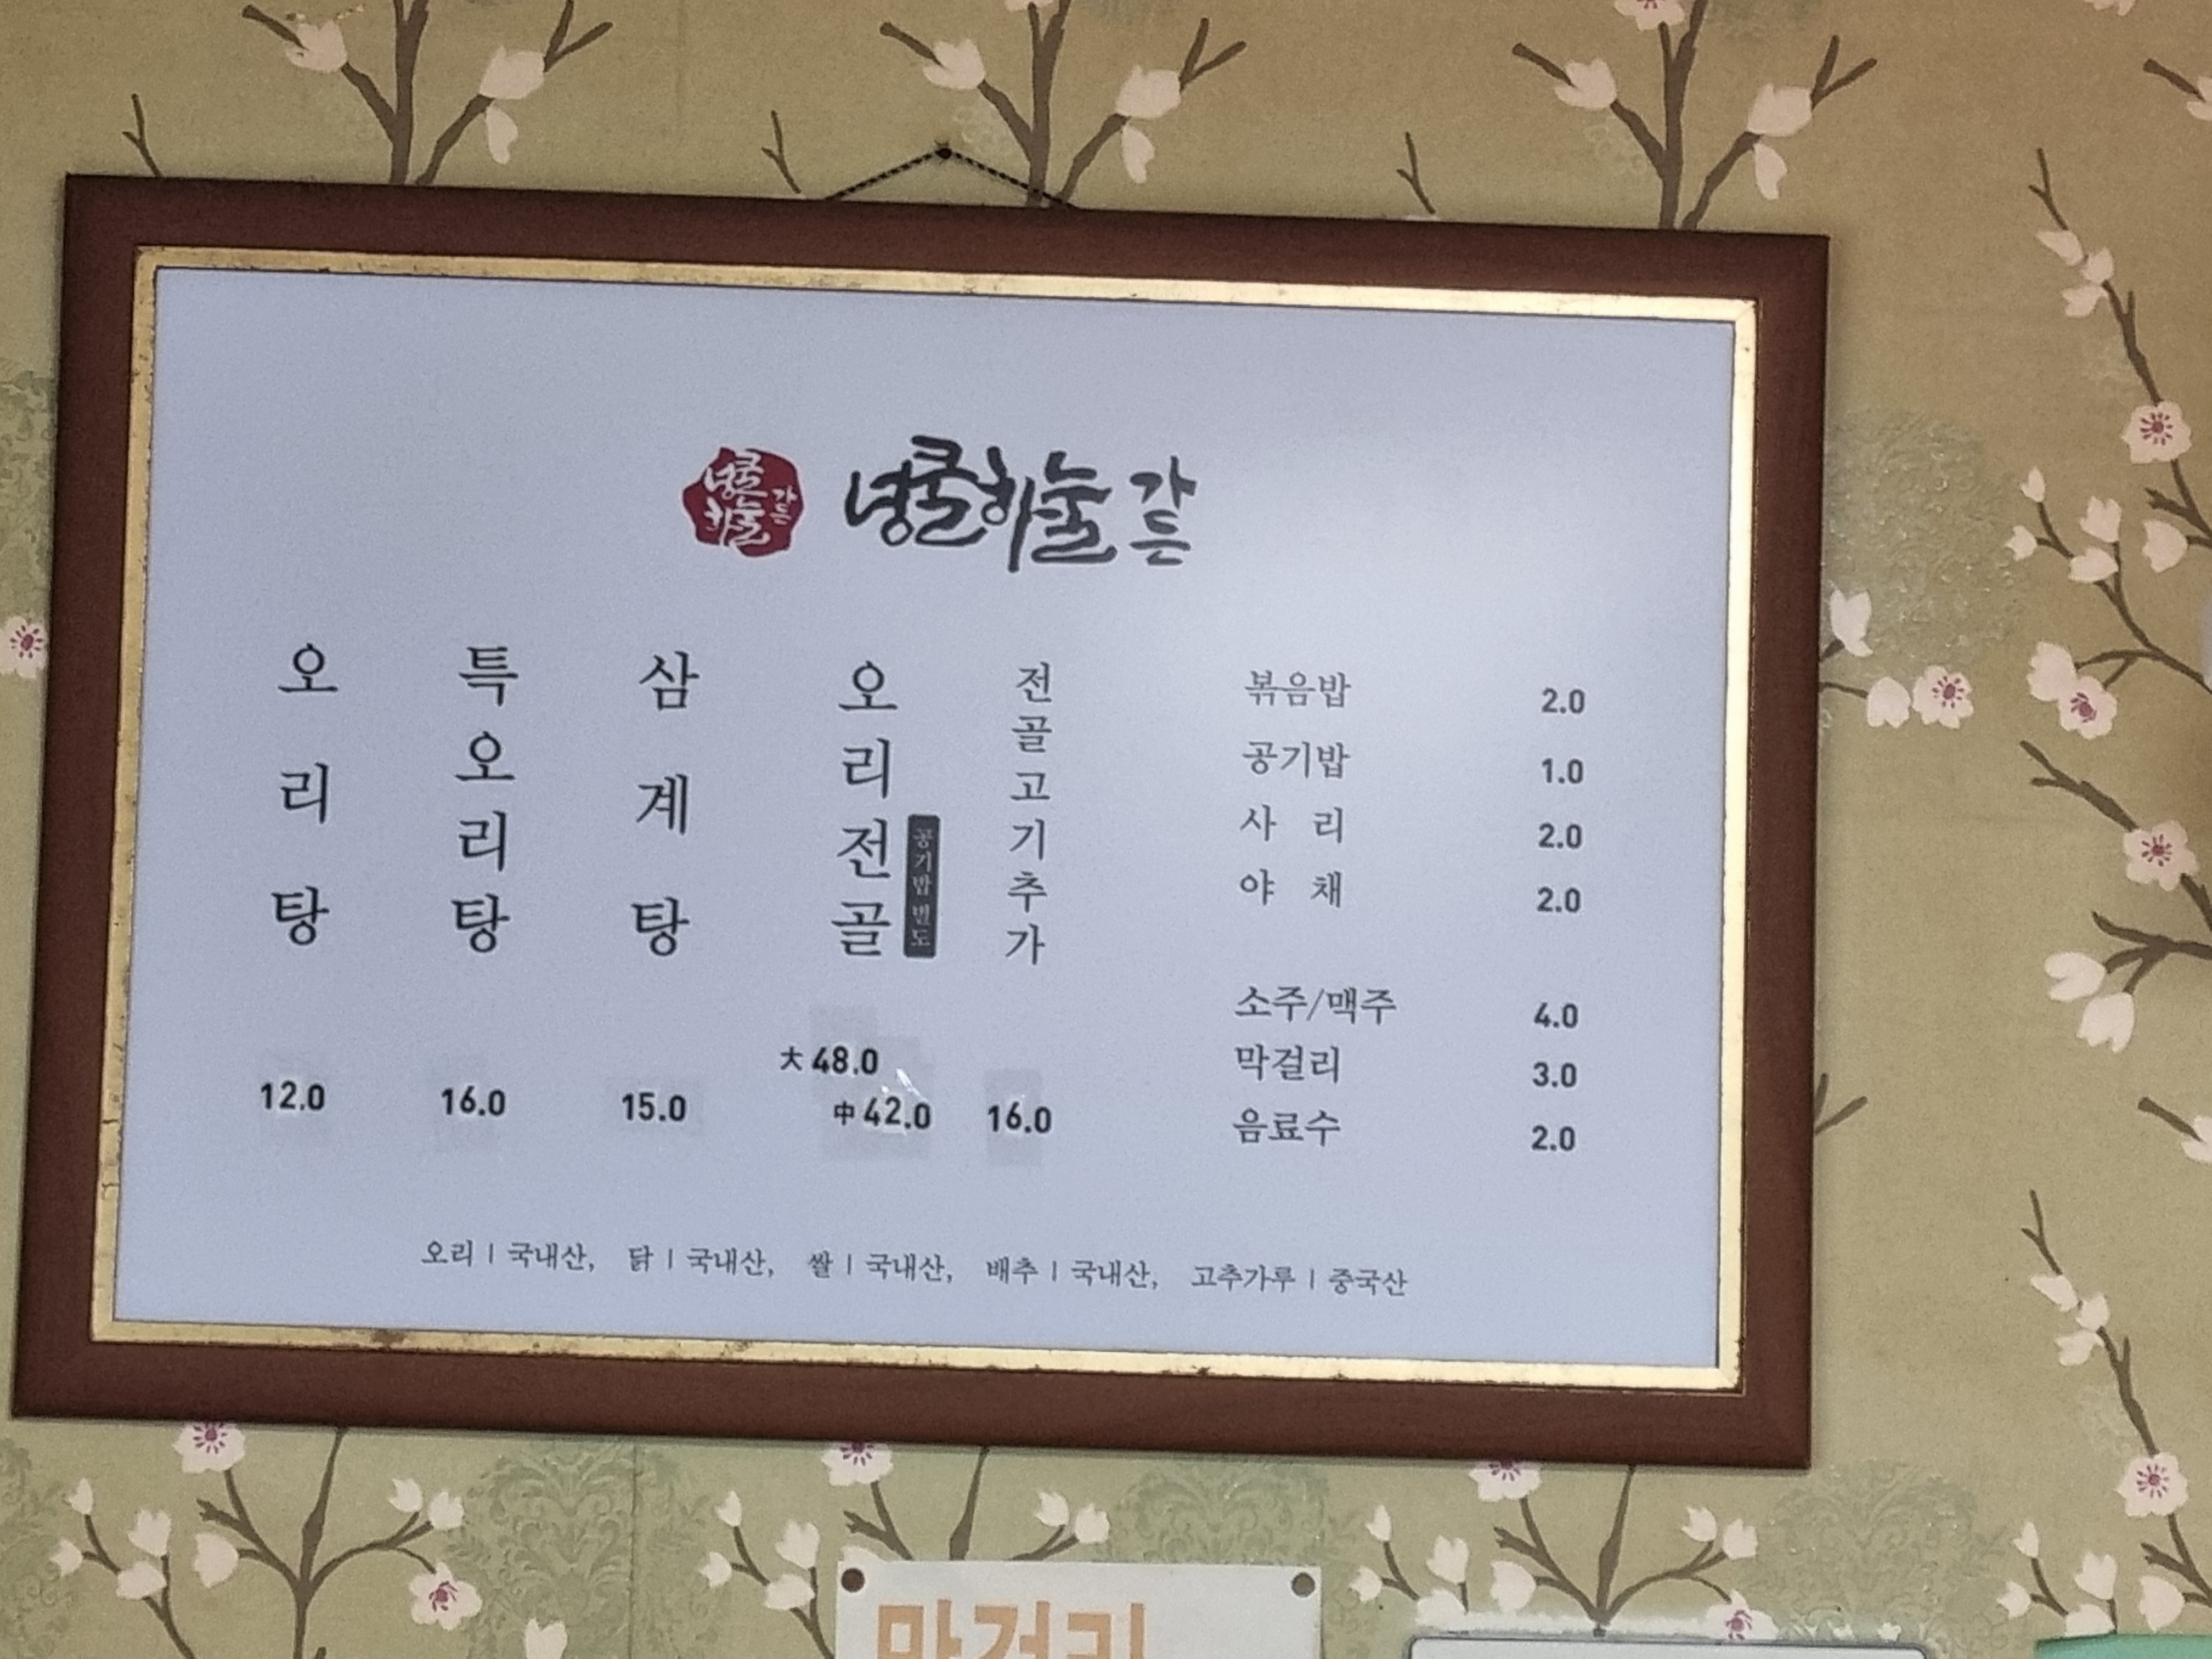 넝쿨
하눌
가든
넝쿨하눌 가든
오리탕
12.0
특오리탕
16.0
삼계탕
15.0
오리전골
공기밥 별도
大 48.0
中 42.0
전골고기추가
16.0
볶음밥 2.0
공기밥 1.0
사 리 2.0
야 채 2.0
소주/맥주 4.0
막걸리 3.0
음료수 2.0
오리 | 국내산, 닭 | 국내산, 쌀 | 국내산, 배추 | 국내산, 고추가루 | 중국산
막걸리